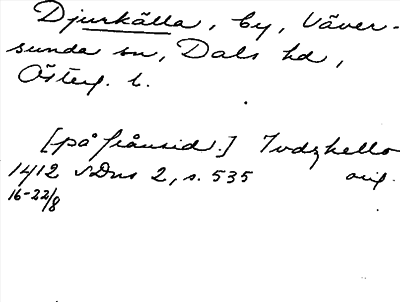 Djurkälla, by, Väver-
sunda sn, Dals hd,
Österg. l.
[på frånsid.] Iudzkello
1412 SDns 2, s. 535 orig.
16-22/8